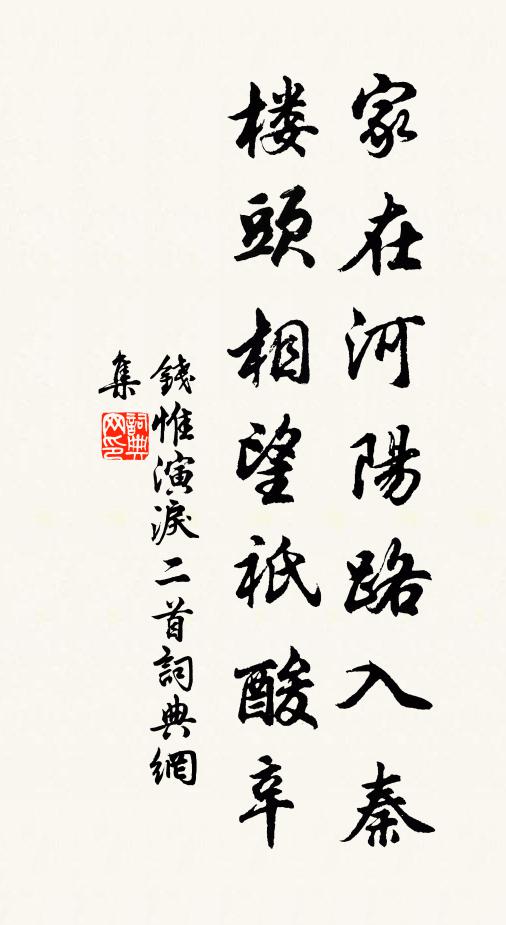 家在河陽路入秦
楼頭相望祇酸辛
錢惟演淚二首詞典網
集
詞典网印